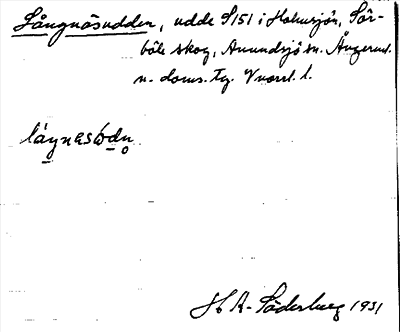 Långnäsudden, udde S 151 i Holmsjön, Sör-
böle skog, Anundsjö sn. Ångerml.
n. doms. tg. Vnorrl. l.
H A. Söderberg 1931